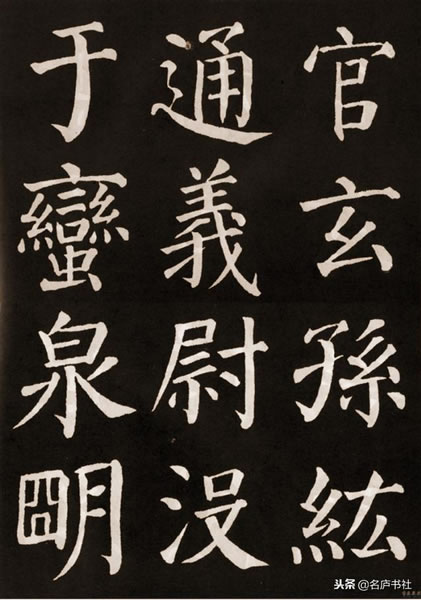 官玄孫紘
通義尉没
于蠻泉朙
头条 @名庐书社